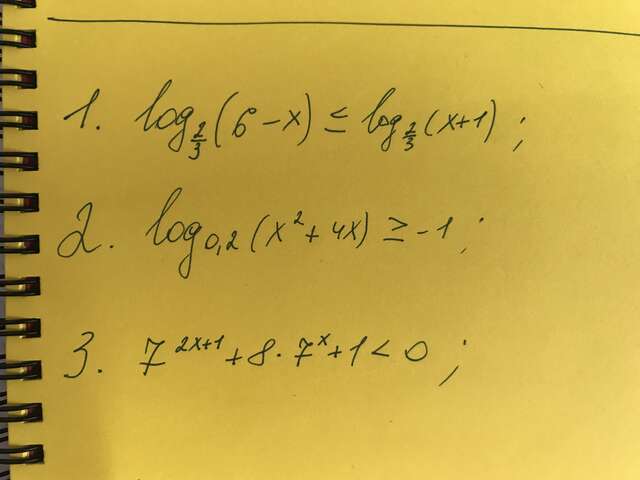 1. log_{2/3}(6-x) = log_{2/3}(x+1);
2. log_{0,2}(x²+4x) ≥ -1;
3. 7^{2x+1}+8·7^x+1<0;